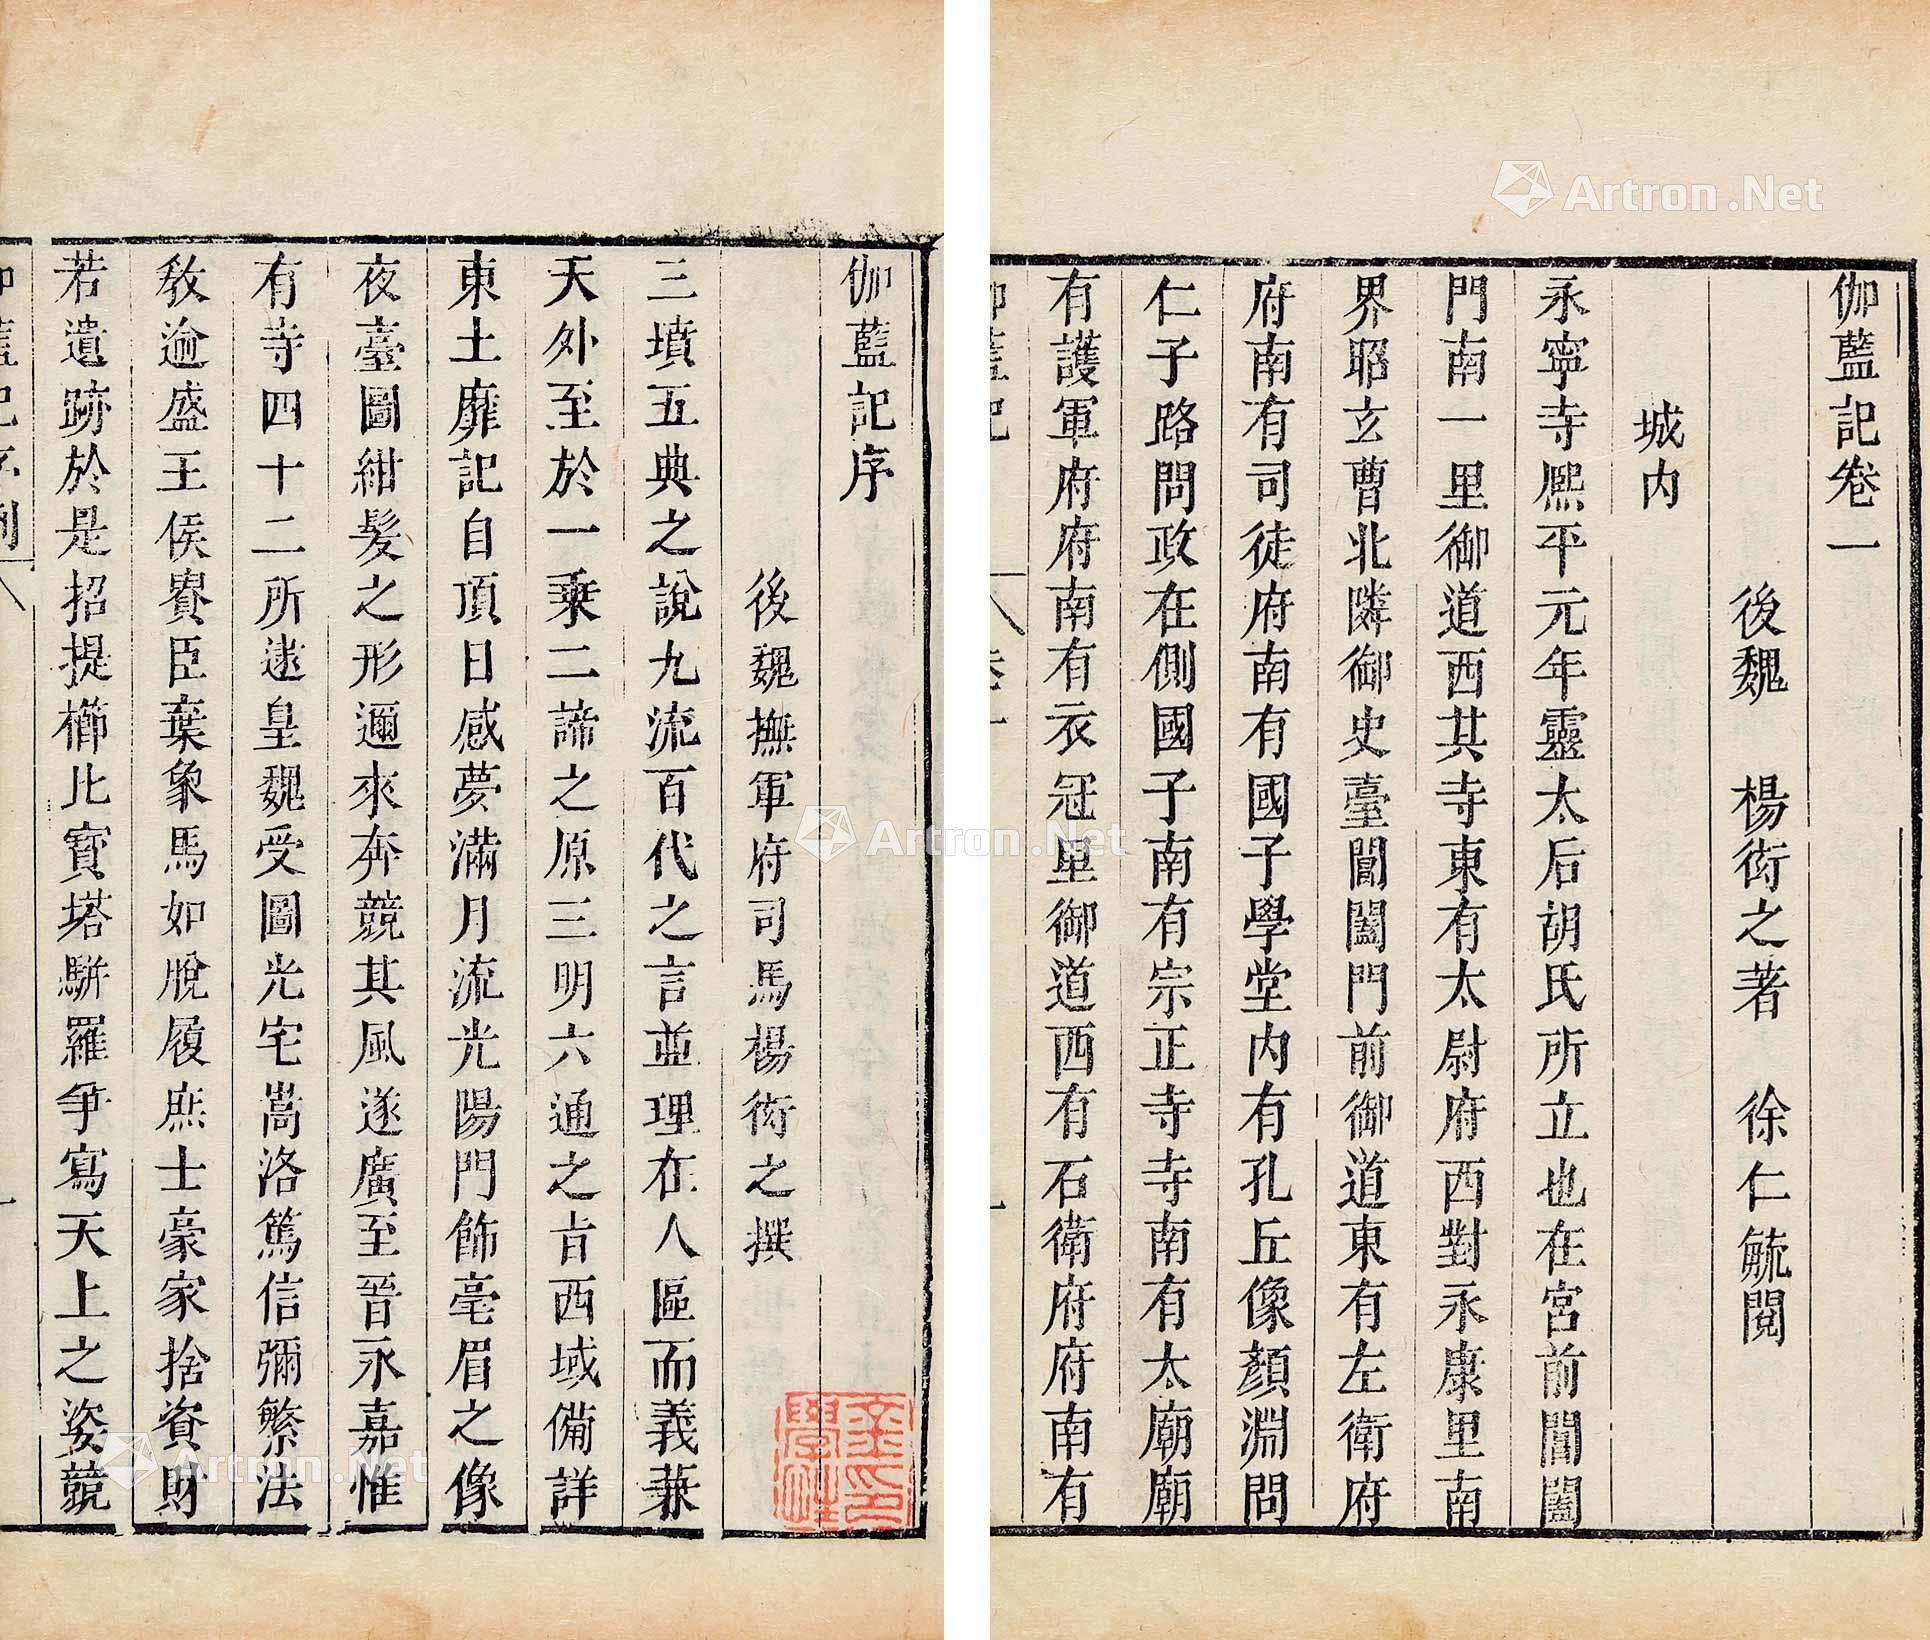 伽藍記卷一
後魏　楊衒之著　徐仁毓閱
城内
永寧寺熈平元年靈太后胡氏所立也在宮前閶闔
門南一里御道西其寺東有太尉府西對永康里南
界昭玄曹北隣御史臺閶闔門前御道東有左衛府
府南有司徒府府南有國子學堂内有孔丘像顏淵問
仁子路問政在側國子南有宗正寺寺南有太廟廟
有護軍府府南有衣冠里御道西有石衛府府南有
伽藍記序
後魏撫軍府司馬楊衒之撰
三墳五典之說九流百代之言並理在人區而義兼
天外至於一乗二諦之原三明六通之㫖西域備詳
東土靡記自頂日感夢滿月流光陽門飾毫眉之像
夜臺圖紺髮之形邇來奔競其風遂廣至晉永嘉惟
有寺四十二所逮皇魏受圖光宅嵩洛篤信彌繁法
教逾盛王侯賚臣棄象馬如脫履庶士豪家捨資財
若遺跡於是招提櫛比寳塔駢羅爭寫天上之姿競
Artron.Net
Artron.Net
Artron.Net